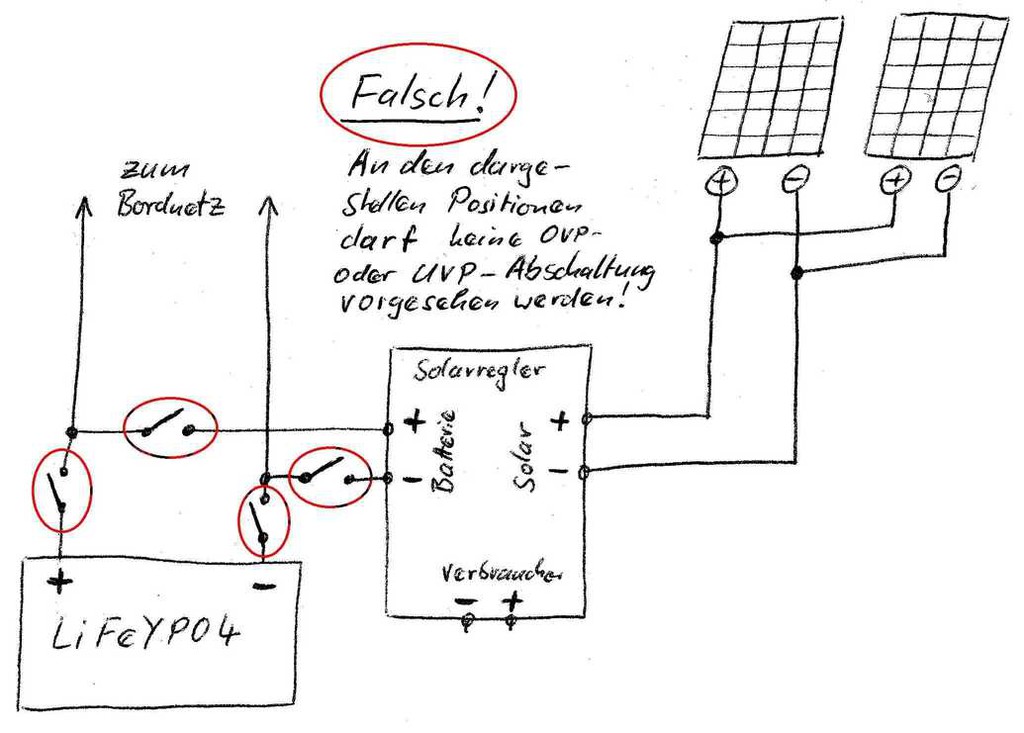 Falsch!
An den darge-
stellen Positionen
darf keine OVP-
oder UVP-Abschaltung
vorgesehen werden!
zum
Bordnetz
+ - + -
Solarregler
+ Batterie -
Solar + -
Verbraucher
- +
+ -
LiFeYPO4